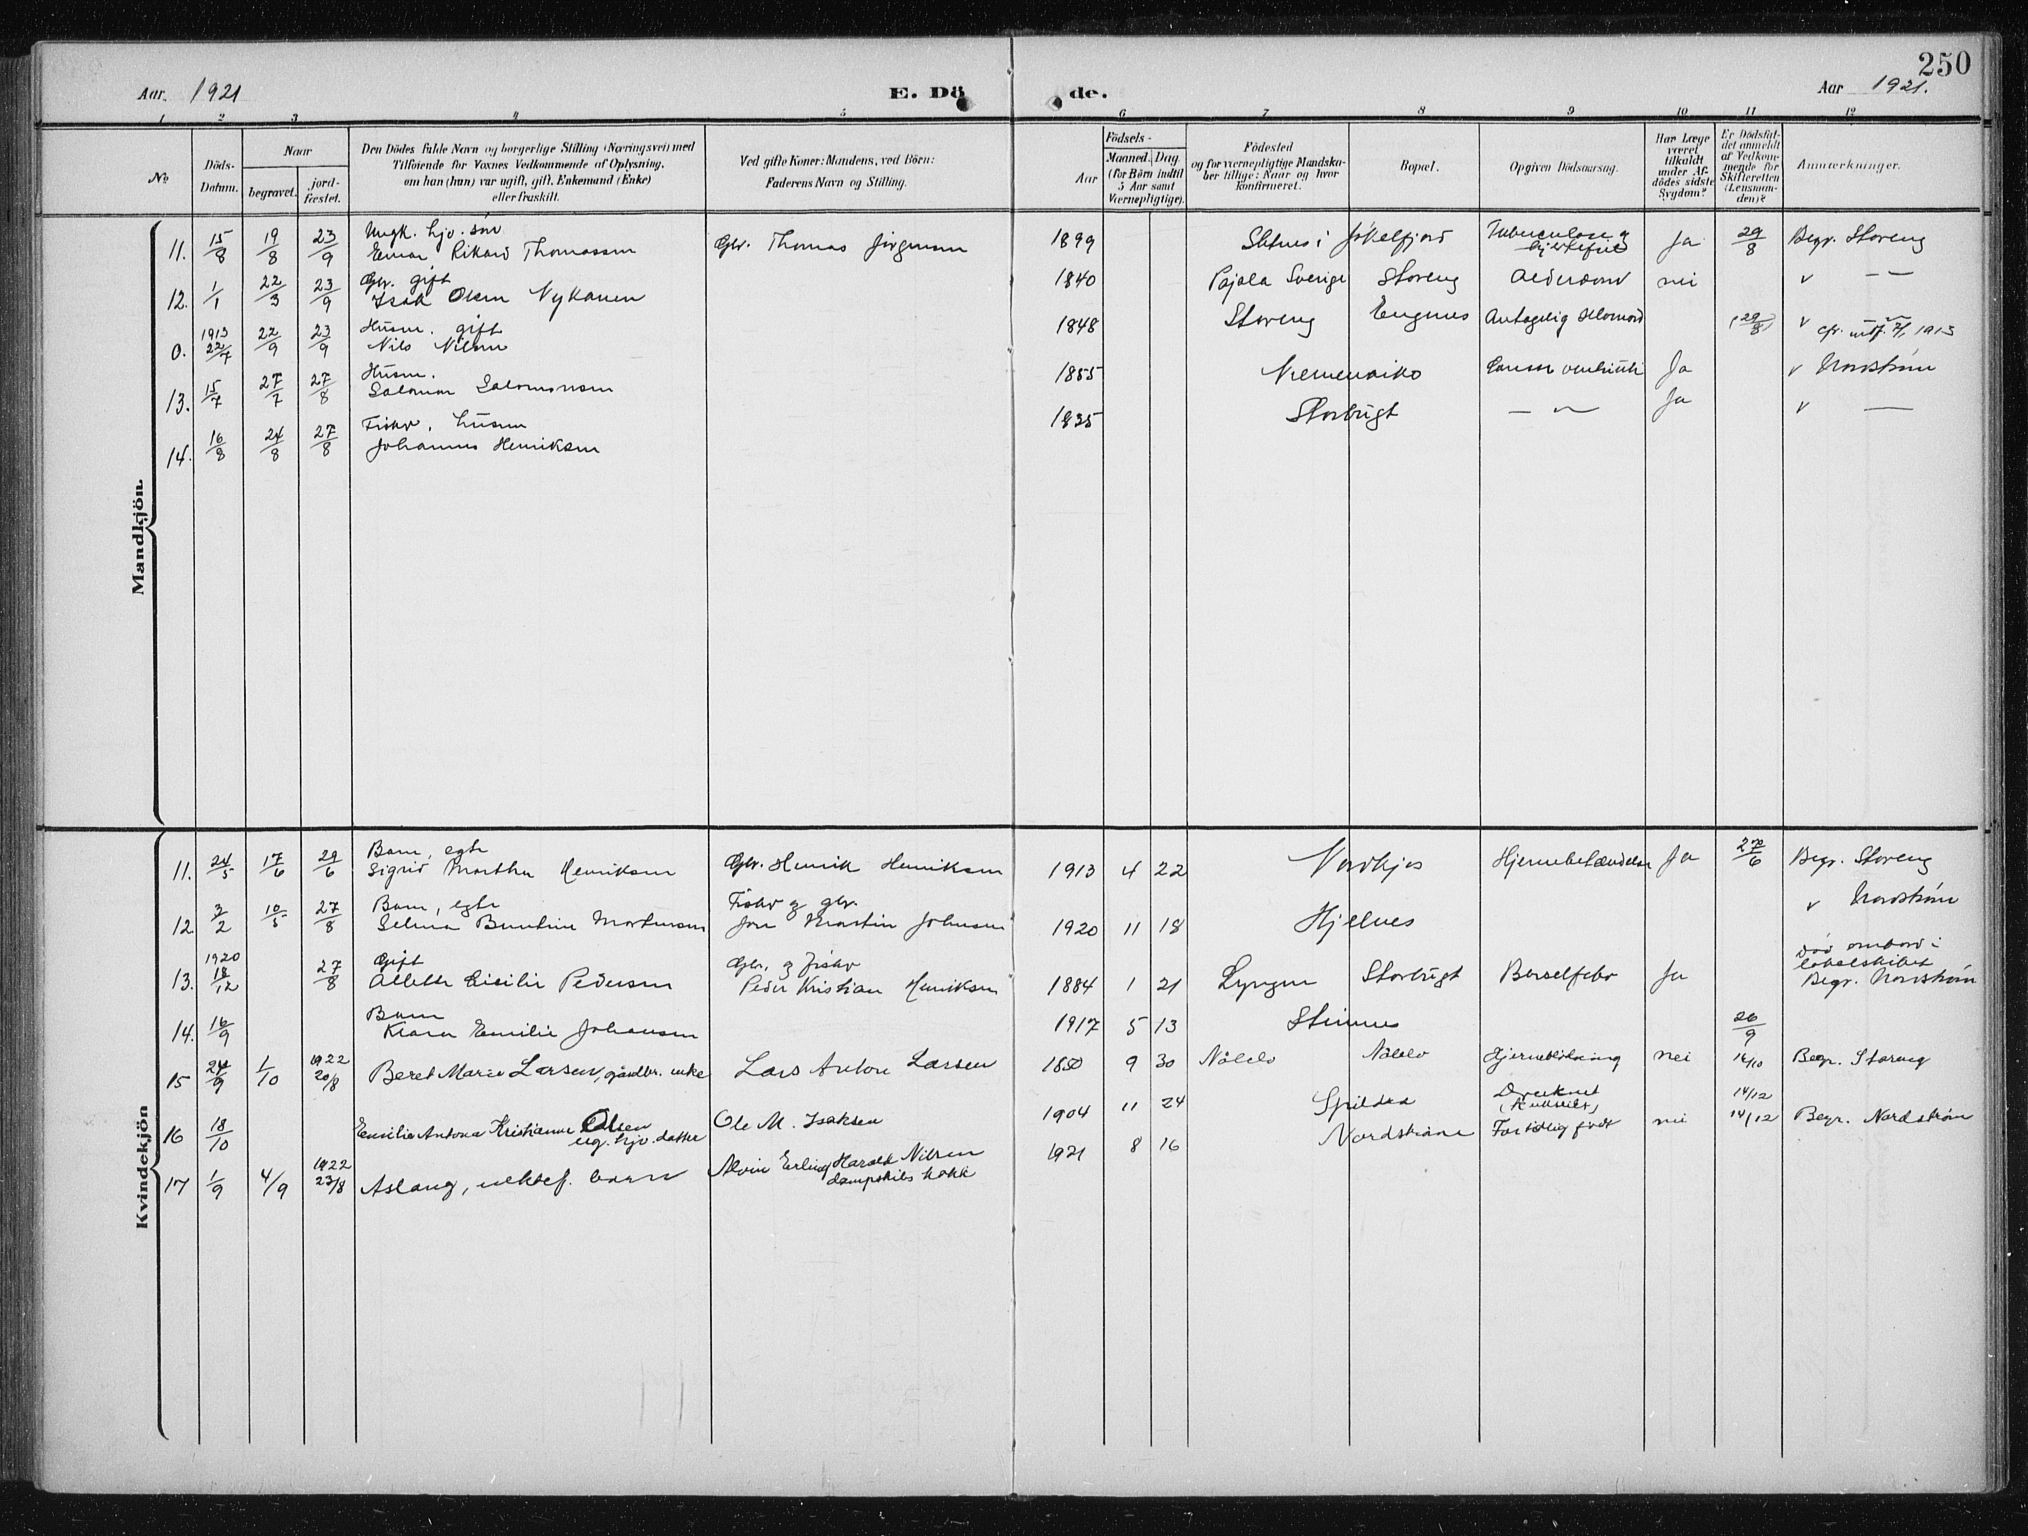 250
Aar 1921
E. Dö de.
Aar 1921.
1 2 3 4 5 6 7 8 9 10 11 12
No
Döds-Datum.
Naar
begravet.
jord-fæstet.
Den Dödes fulde Navn og borgerlige Stilling (Næringsvei) med
Tilföiende for Voxnes Vedkommende af Oplysning,
om han (hun) var ugift, gift, Enkemand (Enke)
eller fraskilt.
Ved gifte Koner: Mandens, ved Börn:
Faderens Navn og Stilling.
Födsels-
Aar
Maaned. Dag
(for Börn indtil
5 Aar samt
Værnepligtige).
Födested
og for værnepligtige Mandska-
ber tillige: Naar og hvor
konfirmeret.
Bopæl.
Opgiven Dödsaarsag.
Har Læge
været
tilkaldt
under Af-
dödes sidste
Sygdom?
Er Dödsfal-
det anmeldt
af Vedkom-
mende for
Skifteretten
(Lensman-
den)?
Anmærkninger.
Mandkjön.
11. 15/8 19/8 23/9 Ungk. hjv. søn
Einar Rikard Thomassen Gbr. Thomas Jørgensen 1899 Jøkelfjord Tuberculose og
hjertefeil Ja 29/8 Begr. Storeng
12. 1/1 22/3 23/9 Gbr. gift
Isak Olsen Nykänen 1840 Pajala Sverige Storeng Alderdom nei v —
0. 1913 22/7 22/9 23/9 Husm. gift
Nils Nilsen 1848 Storeng Engnes Antagelig (29/8) v cfr. 1913
13. 15/7 27/7 27/8 Husm.
Salomon Salomonsen 1855 Cancer ventriculi Ja v Nordstrøm
14. 16/8 24/8 27/8 Fisker, husm
Johannes Henriksen 1835 Storbugt — Ja v —
Kvindekjön
11. 24/5 17/6 29/6 Barn, egte
Sigrid Martha Henriksen Gbr. Henrik Henriksen 1913 4 22 Hjernebetændelse Ja 27/6 Begr. Storeng
12 3/2 10/5 27/8 Barn, egte
Selma Bentine Mortensen Fisker og gbr.
Jon Martin Johnsen 1920 11 18 Hjelnes v Nordstrøm
13. 1920 18/12 27/8 Gift
Allette Cicilie Pedersen Gbr. og fisker
Peder Kristian Henriksen 1884 1 21 Lyngen Storbugt Barselfeber Ja Død ombord i
lokalskibet
Begr. Nordstrøm
14. 16/9 Barn
Klara Emilie Johansen 1917 5 13 26/9
15 24/9 1/10 1922 20/8 Beret Marie Larsen, gaardbr. enke Lars Anton Larsen 1850 9 30 Hjerneblødning nei 14/10 Begr. Storeng
16 18/10 Emilie Antona Kristianne Olsen
ug. hjv. datter Ole M. Isaksen 1904 11 24 Spildra Druknet 14/12
17 1/9 4/9 1922 23/8 Aslaug, uektef. barn Alvin Erling Harald Nilsen
dampskibs kokk 1921 8 16 Nordstrøm For tidlig født nei 14/12 Begr. Nordstrøm